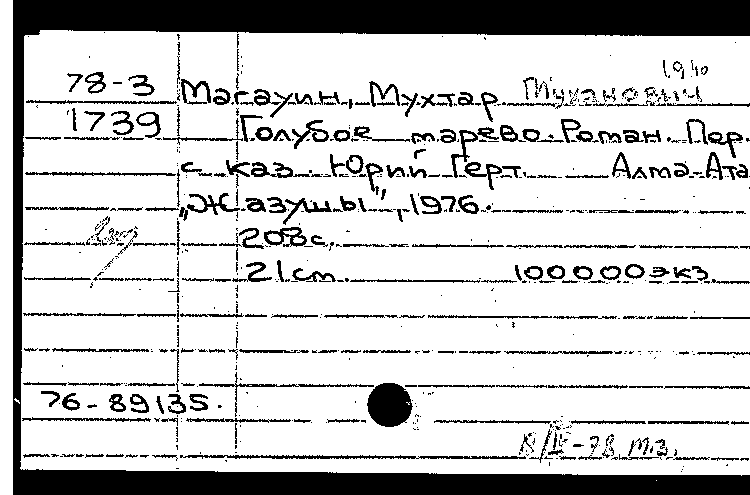 1940
78-3 Магауин, Мухтар Муканович
1739 Голубое марево. Роман. Пер.
с каз. Юрий Герт. Алма-Ата
„Жазушы", 1976.
208с.
21cm. 100000экз.
76-89135.
8/IV-78 м.з.